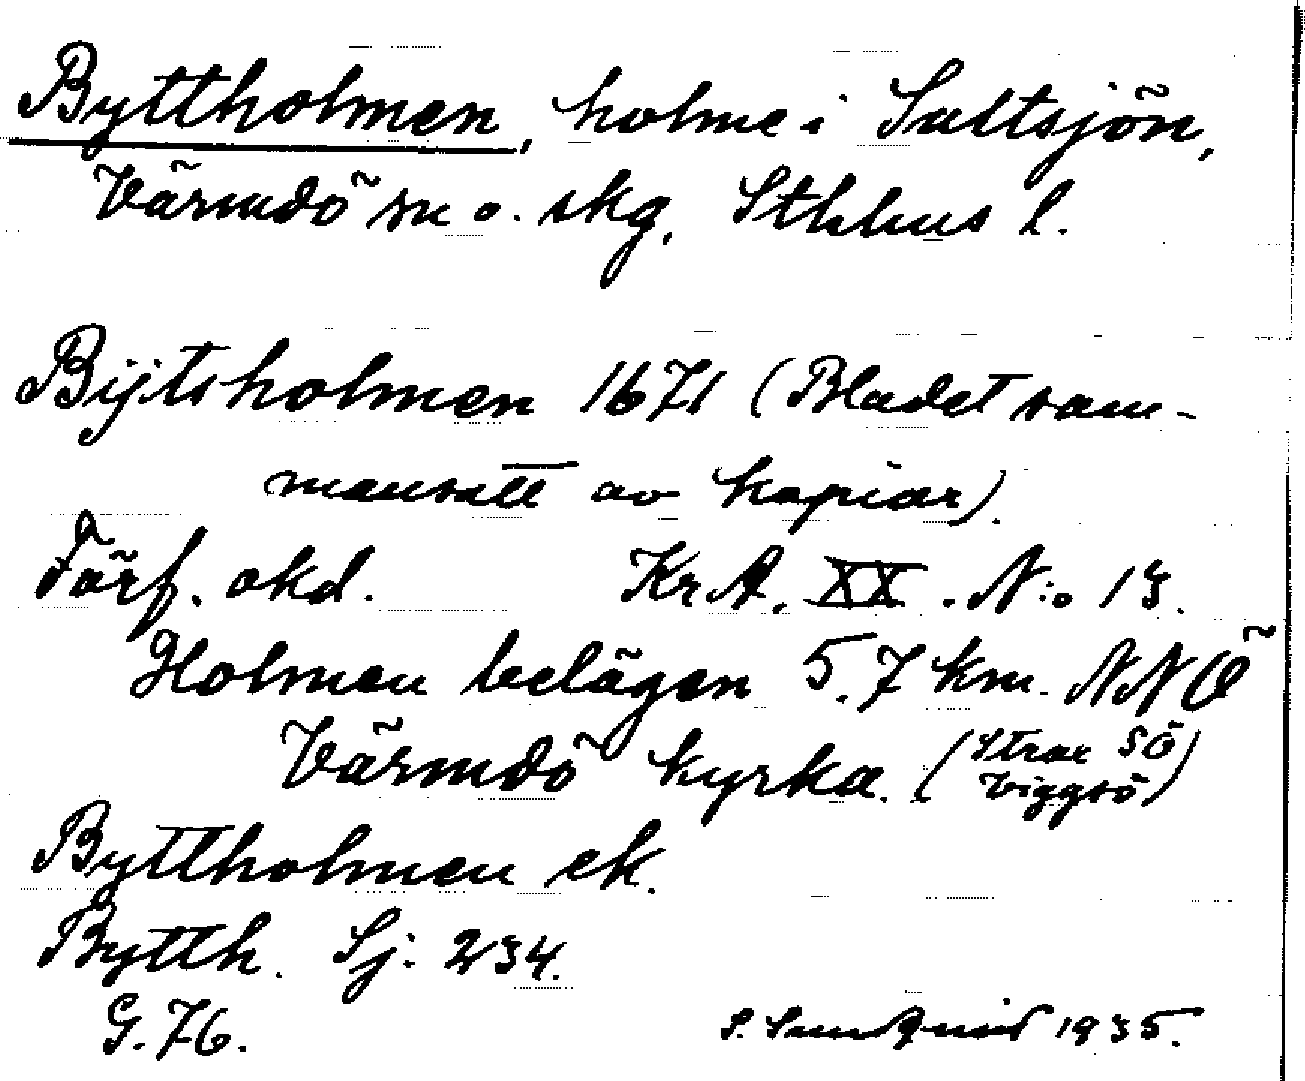 Byttholmen, holme i Saltsjön,
Värmdö sn o. skg, Sthlms l.
Bijtsholmen 1671 (Bladet sam-
mansatt av kopior).
Förf. okd. KrA. XX. N:o 13.
Holmen belägen 5.7 km. NNÖ
Värmdö kyrka. (Strax SÖ
Viggsö)
Byttholmen ek.
Bytth. Sj: 234.
G.76.
S. Sundqvist 1935.